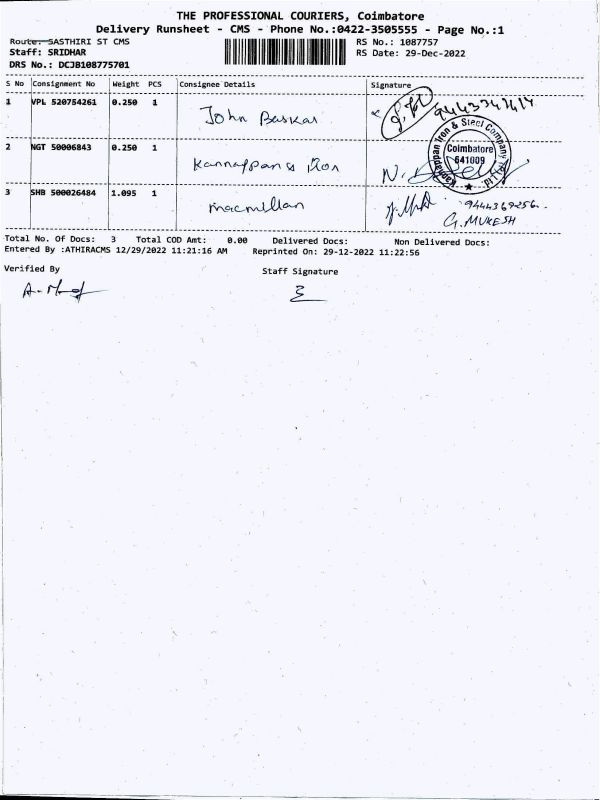 THE PROFESSIONAL COURIERS, Coimbatore
Delivery Runsheet - CMS - Phone No.:0422-3505555 - Page No.:1
Route: SASTHIRI ST CMS
Staff: SRIDHAR
DRS No.: DCJB108775701
RS No.: 1087757
RS Date: 29-Dec-2022
S No Consignment No Weight PCS Consignee Details Signature
1 VPL 520754261 0.250 1 John Baskar
2 NGT 50006843 0.250 1 Kannappan Iron
Kannappan Iron & Steel Company
Coimbatore
641009
3 SHB 500026484 1.095 1 macmillan 9444369256
G. MUKESH
Total No. Of Docs: 3 Total COD Amt: 0.00 Delivered Docs: Non Delivered Docs:
Entered By :ATHIRACMS 12/29/2022 11:21:16 AM Reprinted On: 29-12-2022 11:22:56
Verified By
Staff Signature